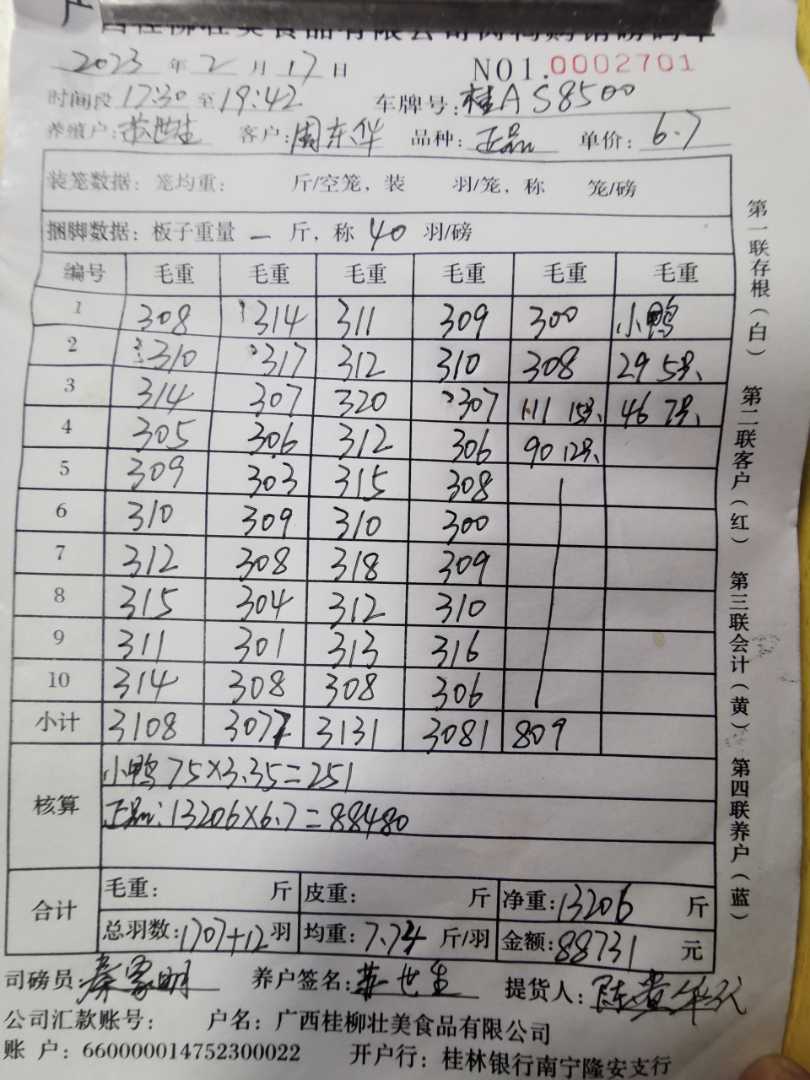 2023 年 2 月 17 日 NO1.0002701
时间段 17:30 至 19:42 车牌号: 桂A S8500
养殖户: 苏世生 客户: 周东华 品种: 正品 单价: 6.7
装笼数据: 笼均重: 斤/空笼, 装 羽/笼, 称 笼/磅
捆脚数据: 板子重量 一 斤, 称 40 羽/磅
编号 毛重 毛重 毛重 毛重 毛重 毛重
1 308 314 311 309 300 小鸭
2 310 317 312 310 308 29 5只
3 314 307 320 307 111 15只 46 7只
4 305 306 312 306 90 12只
5 309 303 315 308
6 310 309 310 300
7 312 308 318 309
8 315 304 312 310
9 311 301 313 316
10 314 308 308 306
小计 3108 3077 3131 3081 809
核算
小鸭 75×3.35=251
正品: 13206×6.7=88480
合计
毛重: 斤 皮重: 斤 净重: 13206 斤
总羽数: 1707+12 羽 均重: 7.74 斤/羽 金额: 88731 元
司磅员: 秦家明 养户签名: 苏世生 提货人:
公司汇款账号: 户名: 广西桂柳壮美食品有限公司
账 户: 660000014752300022 开户行: 桂林银行南宁隆安支行
第一联存根(白) 第二联客户(红) 第三联会计(黄) 第四联养户(蓝)